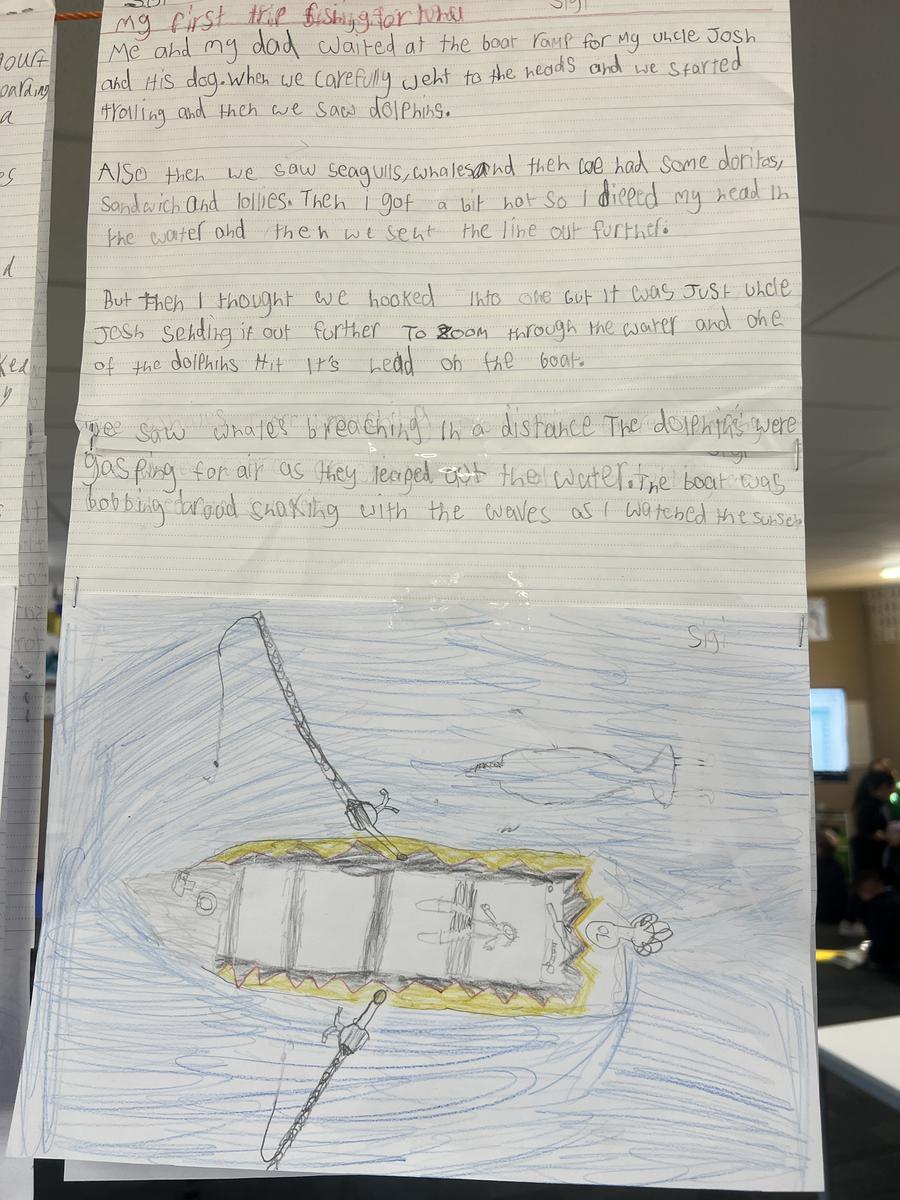 Sigi
my first trip fishing for tuna
Me and my dad waited at the boat ramp for My uncle Josh
and His dog. When we carefully weht to the heads and we started
trolling and then we saw dolphihs.
Also then we saw seagulls, whales and then we had some doritos,
Sandwich and lollies. Then I got a bit hot so I dipped my head in
the water and then we sent the line out further.
But then I thought we hooked into one but it was Just uncle
Josh Sehding it out further To zoom through the water and ohe
of the dolphihs Hit It's head oh the boat.
saw whales breaching In a distance The dolphins were
Sigi
gasping for air as they leaped out the water. The boat was
bobbing with the waves as I watched the sunset
Sigi
ourt
oarding
a
es
d
ked
y